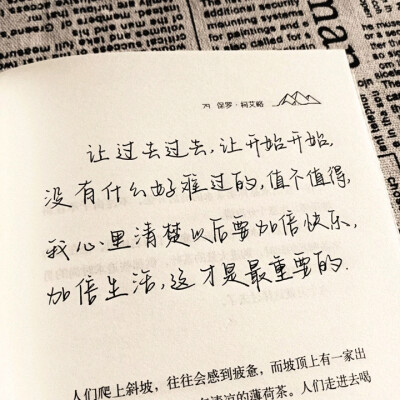 保罗·柯艾略
让过去过去,让开始开始,
没有什么好难过的,值不值得,
我心里清楚以后要加倍快乐,
加倍生活,这才是最重要的.
人们爬上斜坡，往往会感到疲惫，而坡顶上有一家出
清凉的薄荷茶。人们走进去喝